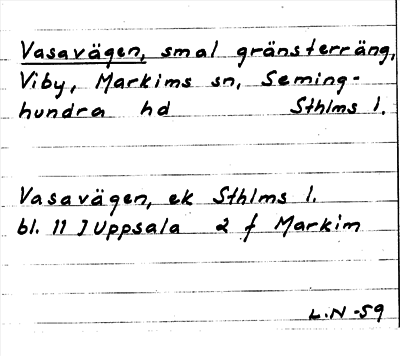 Vasavägen, smal gränsterräng,
Viby, Markims sn, Seming-
hundra hd Sthlms l.
Vasavägen, ek Sthlms l.
bl. 11 J Uppsala 2 f Markim
L.N -59